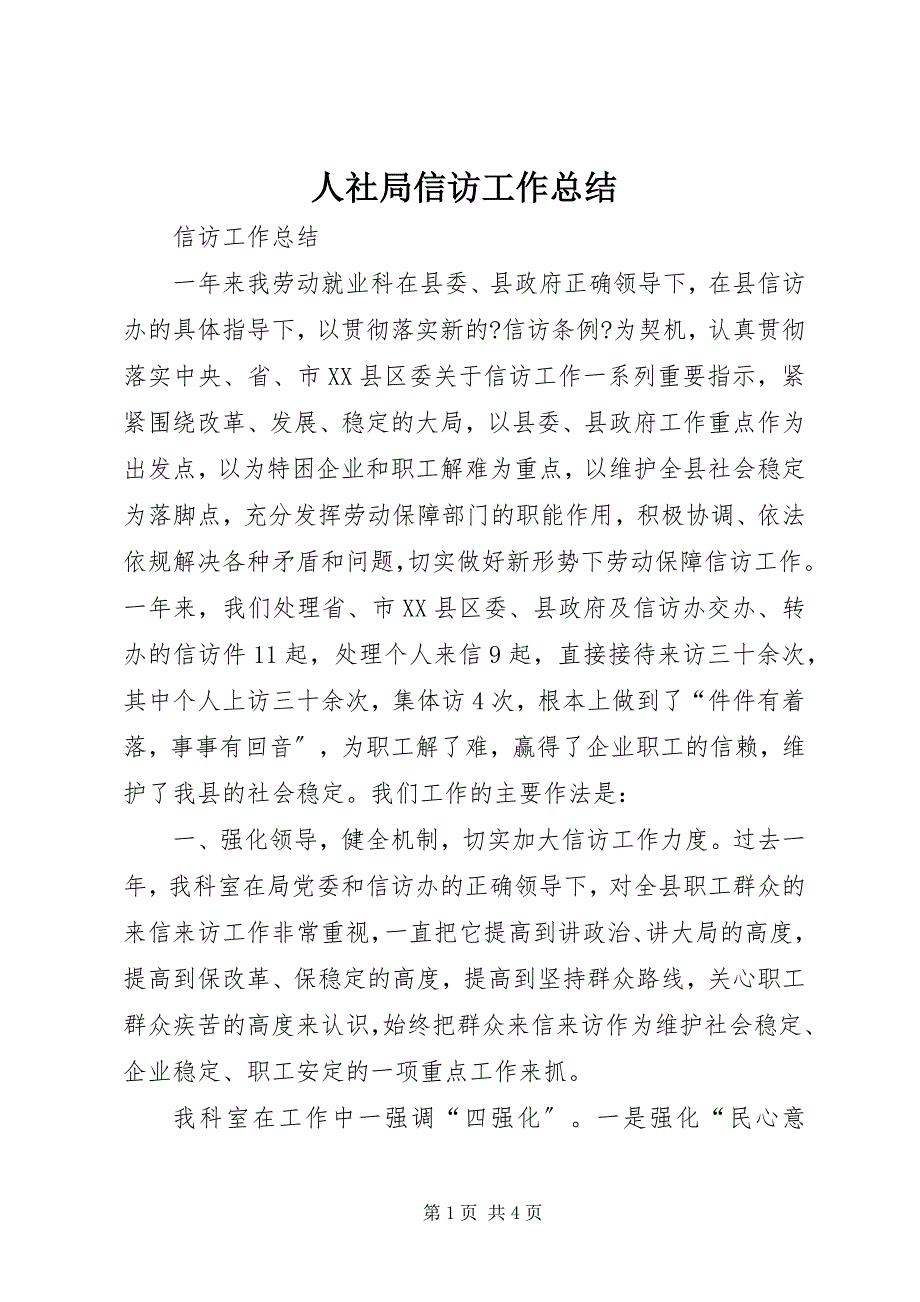 人社局信访工作总结
信访工作总结
一年来我劳动就业科在县委、县政府正确领导下，在县信访
办的具体指导下，以贯彻落实新的?信访条例?为契机，认真贯彻
落实中央、省、市 XX 县区委关于信访工作一系列重要指示，紧
紧围绕改革、发展、稳定的大局，以县委、县政府工作重点作为
出发点，以为特困企业和职工解难为重点，以维护全县社会稳定
为落脚点，充分发挥劳动保障部门的职能作用，积极协调、依法
依规解决各种矛盾和问题，切实做好新形势下劳动保障信访工作。
一年来，我们处理省、市 XX 县区委、县政府及信访办交办、转
办的信访件 11 起，处理个人来信 9 起，直接接待来访三十余次，
其中个人上访三十余次，集体访 4 次，根本上做到了“件件有着
落，事事有回音〞，为职工解了难，赢得了企业职工的信赖，维
护了我县的社会稳定。我们工作的主要作法是：
一、强化领导，健全机制，切实加大信访工作力度。过去一
年，我科室在局党委和信访办的正确领导下，对全县职工群众的
来信来访工作非常重视，一直把它提高到讲政治、讲大局的高度，
提高到保改革、保稳定的高度，提高到坚持群众路线，关心职工
群众疾苦的高度来认识，始终把群众来信来访作为维护社会稳定、
企业稳定、职工安定的一项重点工作来抓。
我科室在工作中一强调“四强化〞。一是强化“民心意
第 1 页 共 4 页